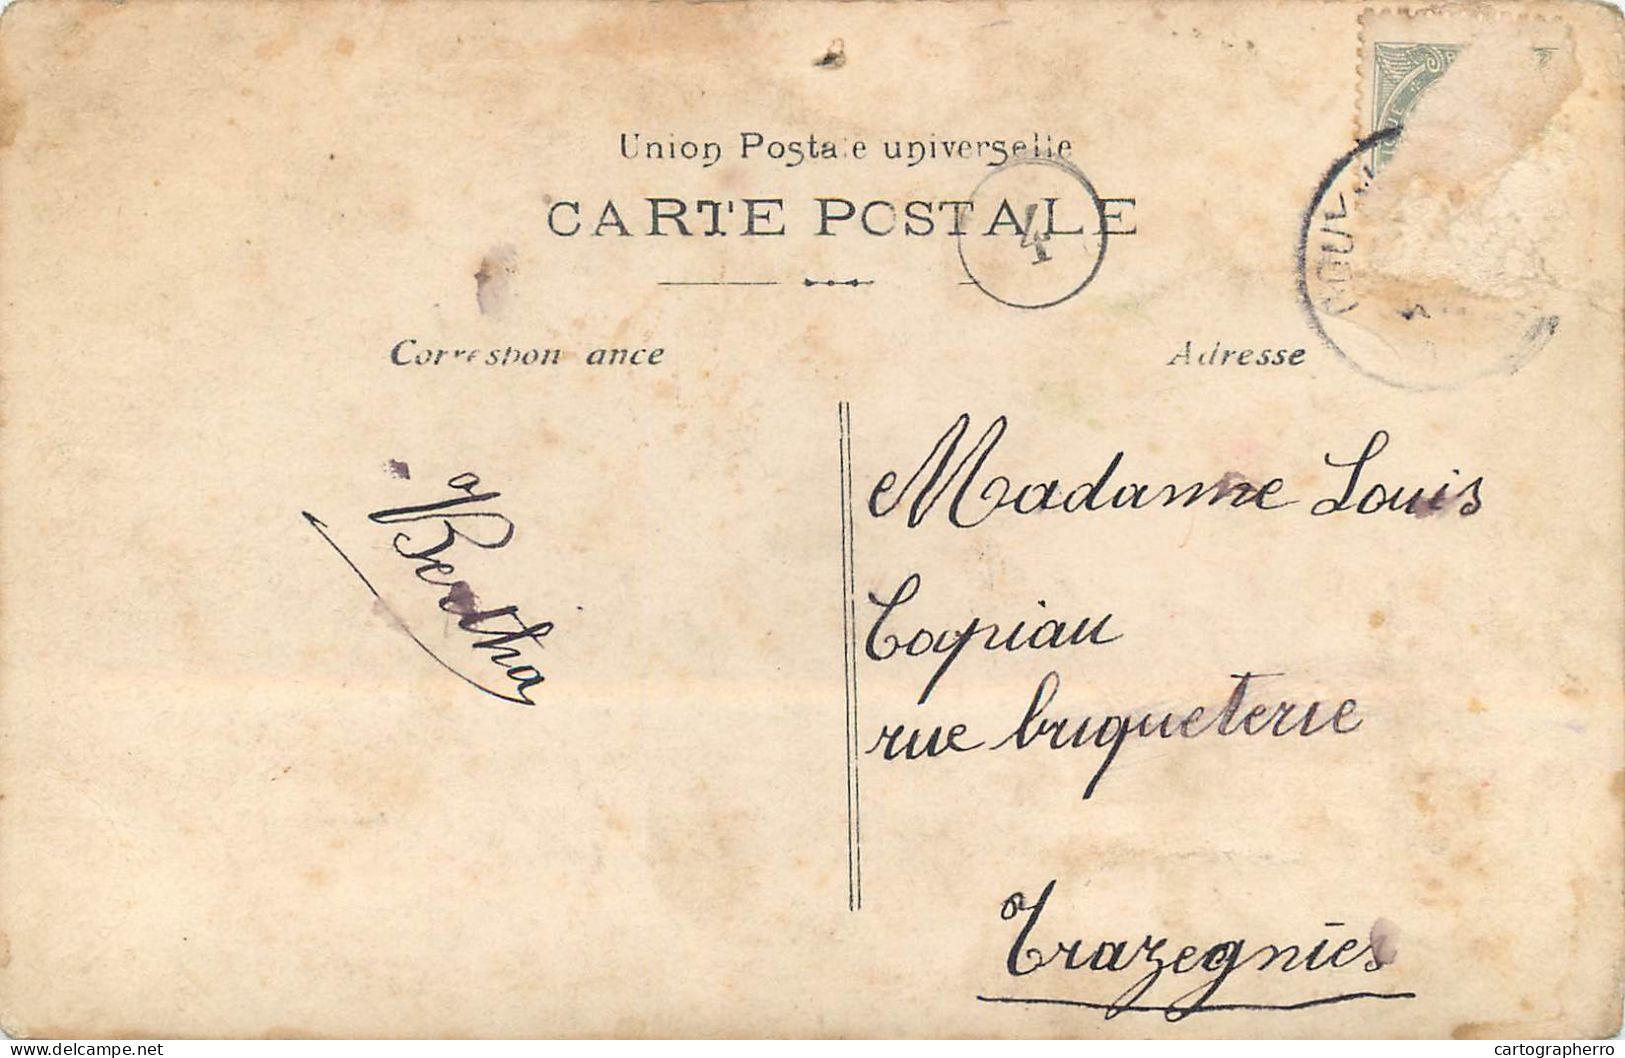 Union Postale universelle
CARTE POSTALE
4
Correspon ance
Adresse
IQUE
Bertha
Madame Louis
Copiau
rue briqueterie
Trazegnies
delcampe.net
cartographerro